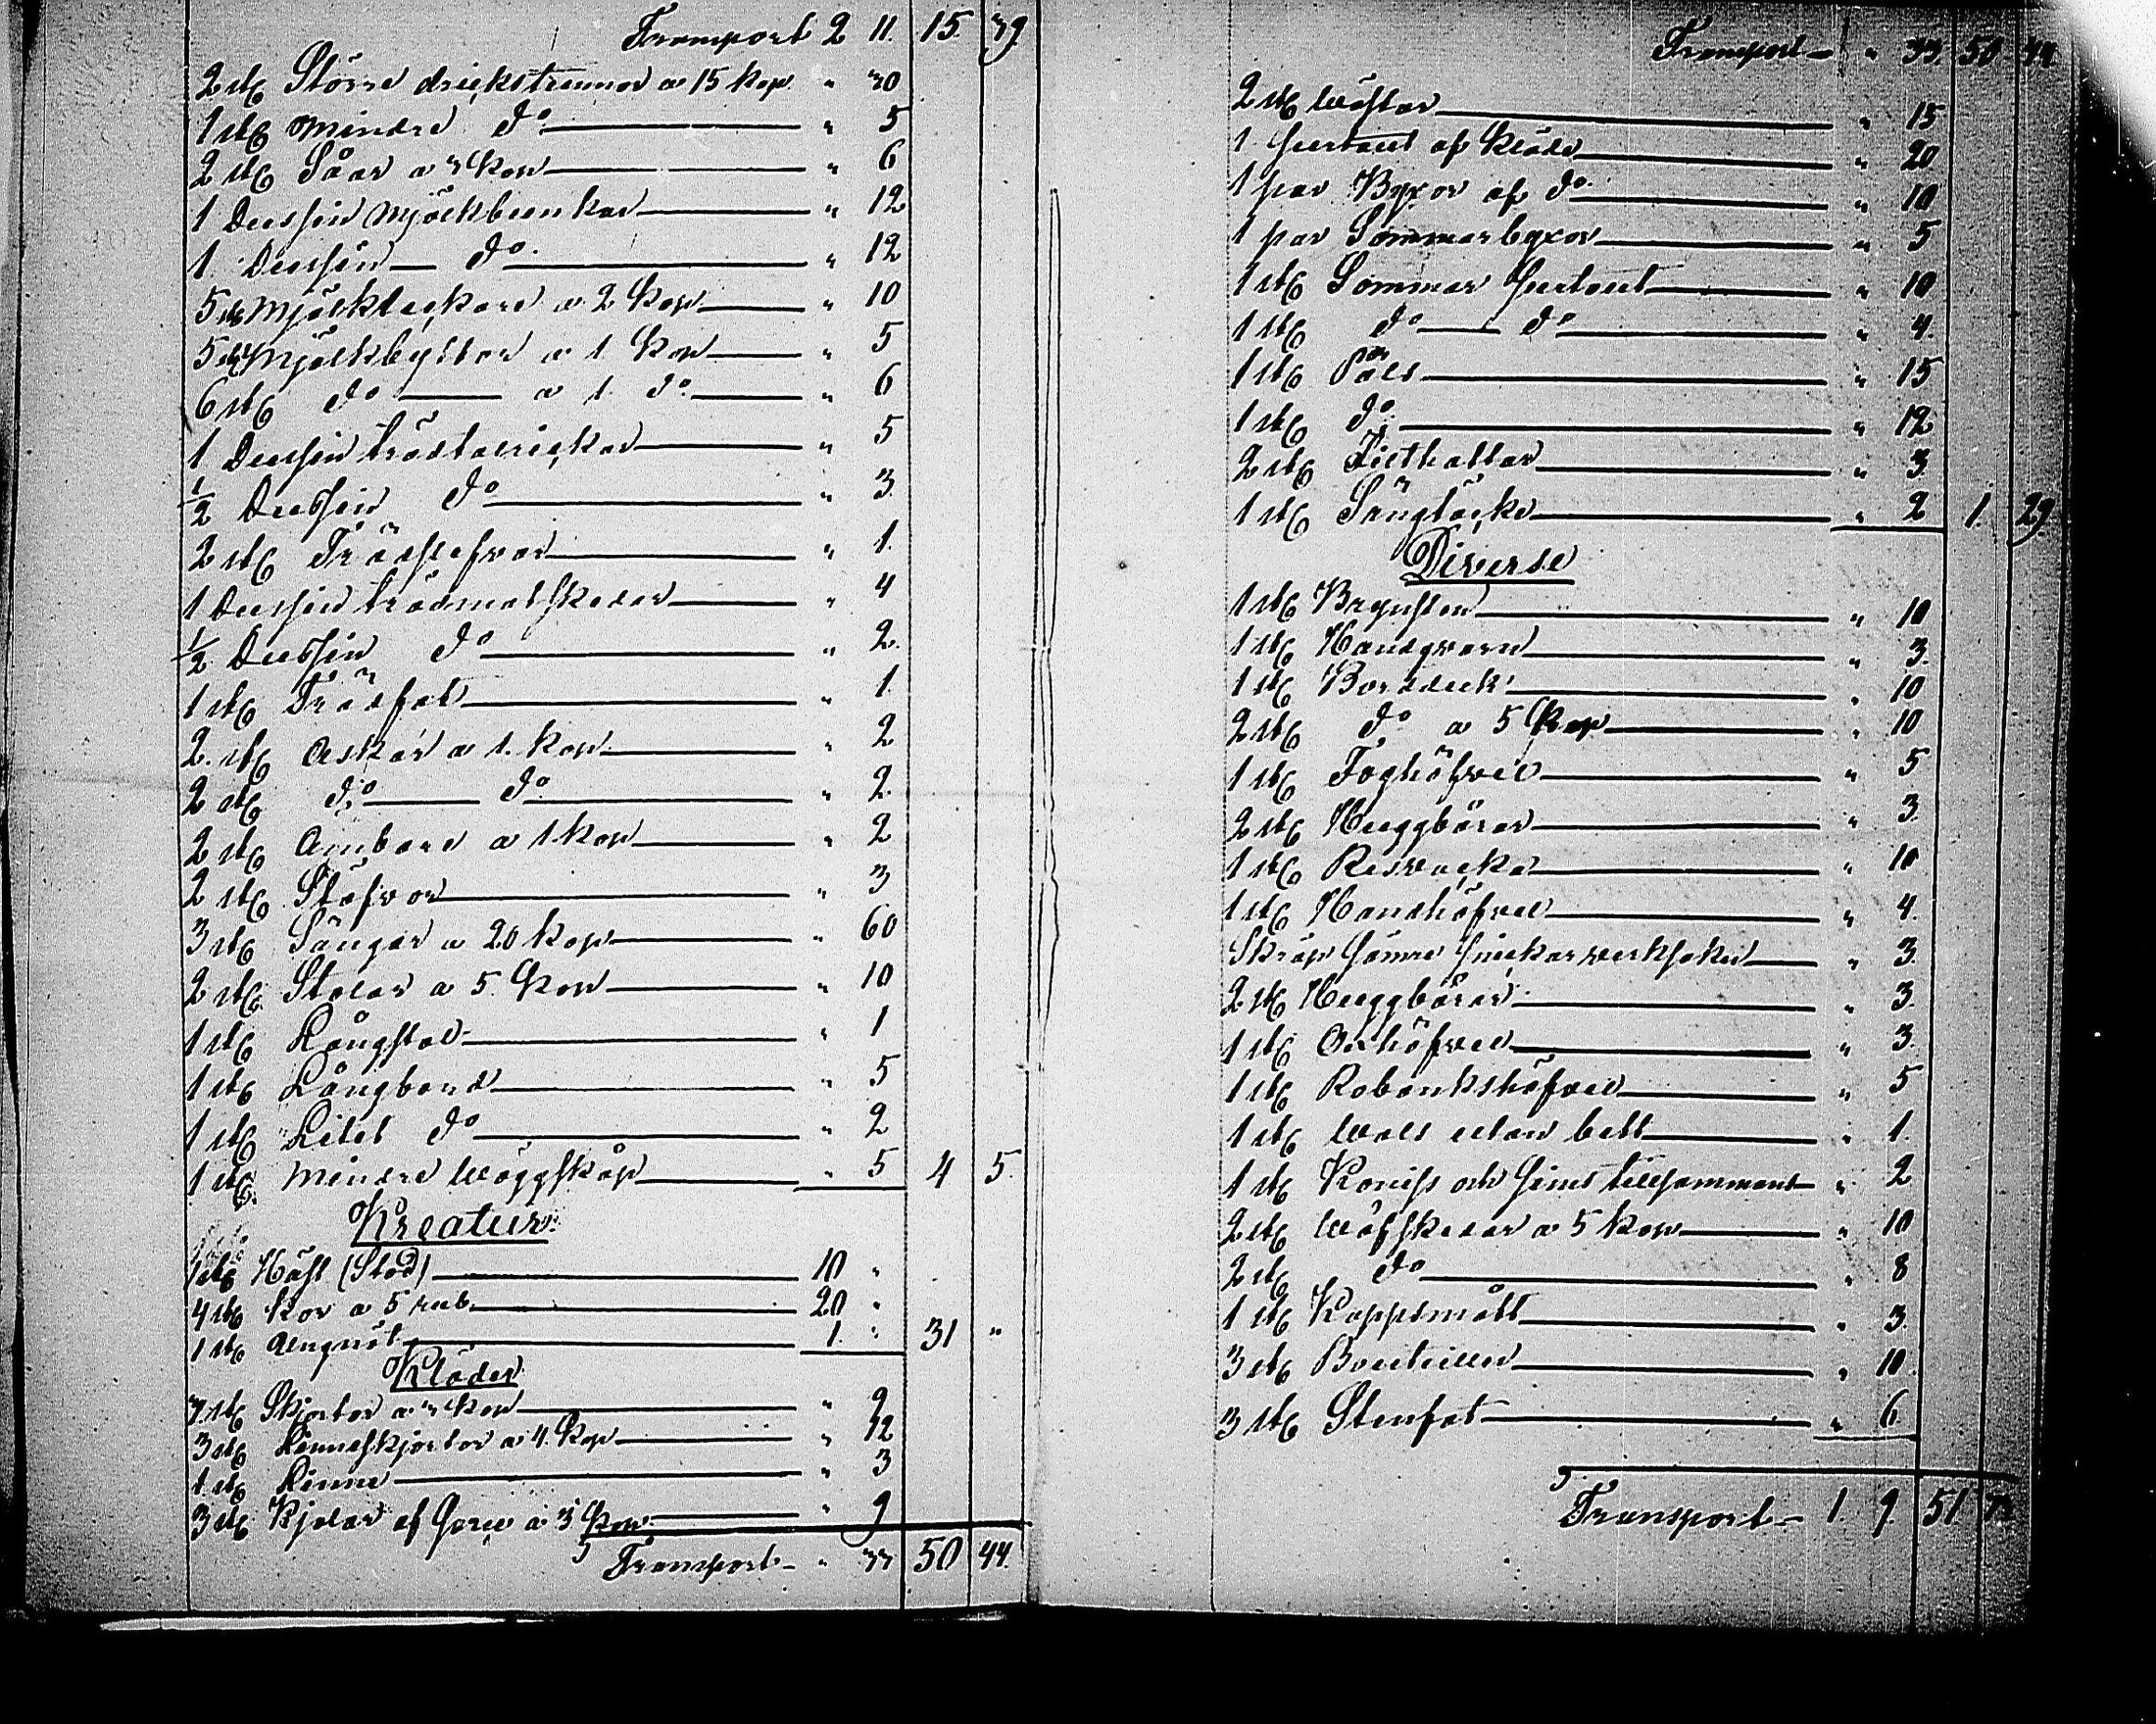 Transport 2 11. 15. 39
2 stς Större drickstunnor a 15 kop. " 30
1 stς mindre do " 5
2 stς Såar a 3 kop " 6
1 Dussin mjölkbunkar " 12
1 Dussin do " 12
5 stς mjölk a 2 kop " 10
5 stς mjölkbyttor a 1 kop " 5
6 stς do a 1. do " 6
1 Dussin trädtalrickar " 5
1/2 Dussin do " 3
2 stς Trädslefvar " 1.
1 Dussin trädmatskedar " 4
1/2 Dussin do " 2.
1 stς Trädfat " 1.
2. stς Askar a 1. kop. " 2
2 stς do do " 2
2 stς Ämbare a 1 kop " 2
2 stς Stäfvor " 3
3 stς Sängar a 20 kop " 60
2 stς Stolar a 5. kop " 10
1 stς Långstol " 1
1 stς Långbord " 5
1 stς Litet do " 2
1 stς mindre Wäggskåp " 5 4 5.
Kreatur.
1 stς Häst (Stod) 10 "
4 stς kor a 5 rub. 20 "
1 stς Ungnöt 1. " 31 "
Kläder
3 stς Skjortor a 3 kop " 9
3 stς Linneskjortor a 4. kop " 12
1 stς Linne " 3
3 stς Kjolar af a 3 kop " 9
Transport " 33 50 44.
Transport " 33. 50 44.
2 stς Wästar " 15
1 surtout af kläde " 20
1 par Byxor af do " 10
1 par Sommarbyxor " 5
1 stς Sommar surtout " 10
1 stς do do " 4.
1 stς Päls " 15
1 stς do " 12
2 stς Filthattar " 3
1 stς Sängtäcke " 2 1. 29.
Diverse
1 stς Brynsten " 10
1 stς Handqvarn " 3.
1 stς Bordduck " 10
2 stς do a 5 kop " 10
1 stς Foghöfvel " 5
2 stς Huggbårar " 3.
1 stς Resväcka " 10
1 stς Handhöfvel " 4.
Skräp sämre snickarverksaker " 3
2 stς Huggbårar " 3.
1 stς höfvel " 3.
1 stς Robankshöfvel " 5
1 stς utan bett " 1.
1 stς och Sims tillsammans " 2
2 stς Wäfskedar a 5 kop " 10
2 stς do " 8
1 stς Kappemått " 3.
3 stς Bouteiller " 10.
3 stς Stenfat " 6
Transport 1. 9. 51 73